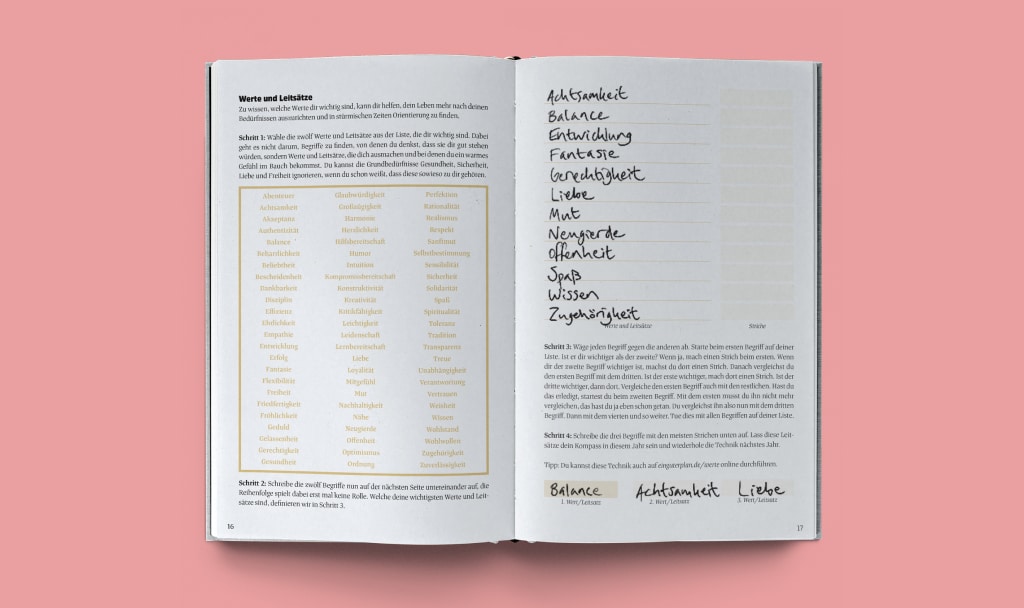 Werte und Leitsätze
Zu wissen, welche Werte dir wichtig sind, kann dir helfen, dem Leben mehr nach deinen
Bedürfnissen auszurichten und in stürmischen Zeiten Orientierung zu finden.
Schritt 1: Wähle die zwölf Werte und Leitsätze aus der Liste, die dir wichtig sind. Dabei
geht es nicht darum, Begriffe zu finden, von denen du denkst, dass sie dir gut stehen
würden, sondern Werte und Leitsätze, die dich ausmachen und bei denen du ein warmes
Gefühl im Bauch bekommst. Du kannst die Grundbedürfnisse Gesundheit, Sicherheit,
Liebe und Freiheit ignorieren, wenn du schon weißt, dass diese sowieso zu dir gehören.
Abenteuer Glaubwürdigkeit Perfektion
Achtsamkeit Großzügigkeit Rationalität
Akzeptanz Harmonie Realismus
Authentizität Herzlichkeit Respekt
Balance Hilfsbereitschaft Sanftmut
Beharrlichkeit Humor Selbstbestimmung
Beliebtheit Intuition Sensibilität
Bescheidenheit Kompromissbereitschaft Sicherheit
Dankbarkeit Konstruktivität Solidarität
Disziplin Kreativität Spaß
Effizienz Kritikfähigkeit Spiritualität
Ehrlichkeit Leichtigkeit Toleranz
Empathie Leidenschaft Tradition
Entwicklung Lernbereitschaft Transparenz
Erfolg Liebe Treue
Fantasie Loyalität Unabhängigkeit
Flexibilität Mitgefühl Verantwortung
Freiheit Mut Vertrauen
Friedfertigkeit Nachhaltigkeit Weisheit
Fröhlichkeit Nähe Wissen
Geduld Neugierde Wohlstand
Gelassenheit Offenheit Wohlwollen
Gerechtigkeit Optimismus Zugehörigkeit
Gesundheit Ordnung Zuverlässigkeit
Schritt 2: Schreibe die zwölf Begriffe nun auf der nächsten Seite untereinander auf, die
Reihenfolge spielt dabei erst mal keine Rolle. Welche deine wichtigsten Werte und Leit-
sätze sind, definieren wir in Schritt 3.
16
Achtsamkeit
Balance
Entwicklung
Fantasie
Gerechtigkeit
Liebe
Mut
Neugierde
Offenheit
Spaß
Wissen
Zugehörigkeit
Werte und Leitsätze Striche
Schritt 3: Wäge jeden Begriff gegen die anderen ab. Starte beim ersten Begriff auf deiner
Liste. Ist er dir wichtiger als der zweite? Wenn ja, mach einen Strich beim ersten. Wenn
dir der zweite Begriff wichtiger ist, machst du dort einen Strich. Danach vergleichst du
den ersten Begriff mit dem dritten. Ist der erste wichtiger, mach dort einen Strich. Ist der
dritte wichtiger, dann dort. Vergleiche den ersten Begriff auch mit den restlichen. Hast du
das erledigt, startest du beim zweiten Begriff. Mit dem ersten musst du ihn nicht mehr
vergleichen, das hast du ja eben schon getan. Du vergleichst ihn also nun mit dem dritten
Begriff. Dann mit dem vierten und so weiter. Tue dies mit allen Begriffen auf deiner Liste.
Schritt 4: Schreibe die drei Begriffe mit den meisten Strichen unten auf. Lass diese Leit-
sätze dein Kompass in diesem Jahr sein und wiederhole die Technik nächstes Jahr.
Tipp: Du kannst diese Technik auch auf eingiterplan.de/werte online durchführen.
Balance Achtsamkeit Liebe
1. Wert/Leitsatz 2. Wert/Leitsatz 3. Wert/Leitsatz
17